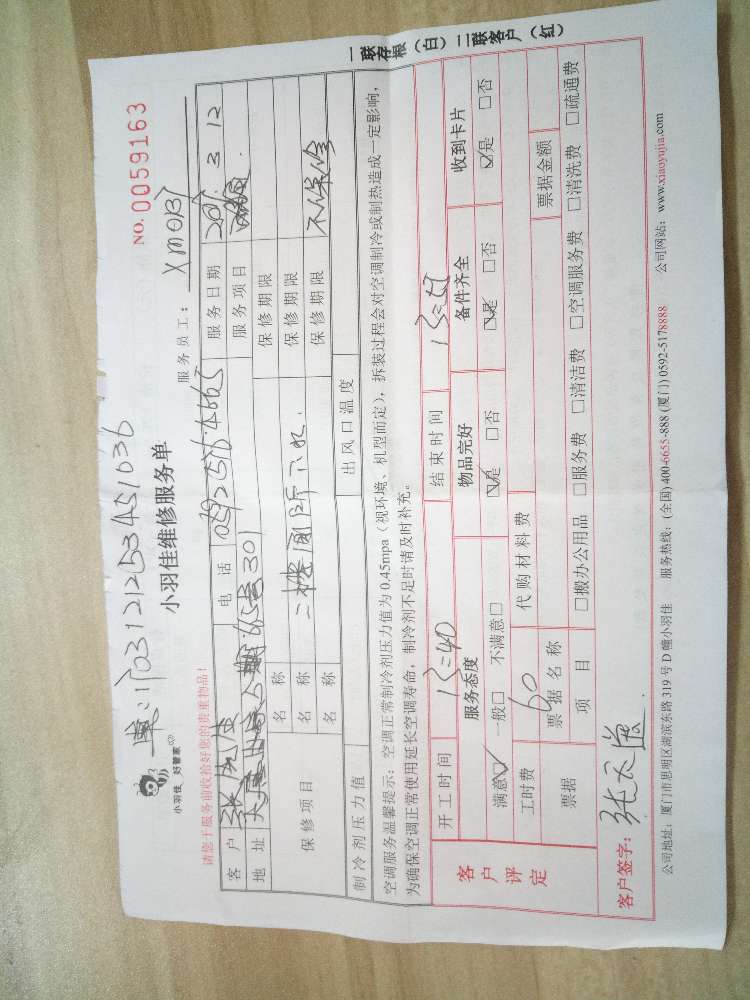 NO. 0059163
小羽佳 好管家
小羽佳维修服务单
服务员工: XM0137
请您于服务前收拾好您的贵重物品!
客户 电话 服务日期 3 12
地址 服务项目
保修项目 名称 保修期限
名称 二楼厕所 保修期限
名称 保修期限 不保修
制冷剂压力值 出风口温度
空调服务温馨提示: 空调正常制冷剂压力值为 0.45mpa (视环境、机型而定), 拆装过程会对空调制冷或制热造成一定影响,
为确保空调正常使用延长空调寿命, 制冷剂不足时请及时补充。
一联存根 (白) 二联客户 (红)
客户评定
开工时间 13=40 结束时间
服务态度 物品完好 备件齐全 收到卡片
满意☑ 一般□ 不满意□ ☑是 □否 ☑是 □否 ☑是 □否
工时费 60 代购材料费
票据 票据名称 票据金额
项目 □搬办公用品 □服务费 □清洁费 □空调服务费 □清洗费 □疏通费
客户签字:
公司地址: 厦门市思明区湖滨东路 319 号 D 幢小羽佳 服务热线: (全国) 400-6655-888 (厦门) 0592-5178888 公司网站: www.xiaoyujia.com